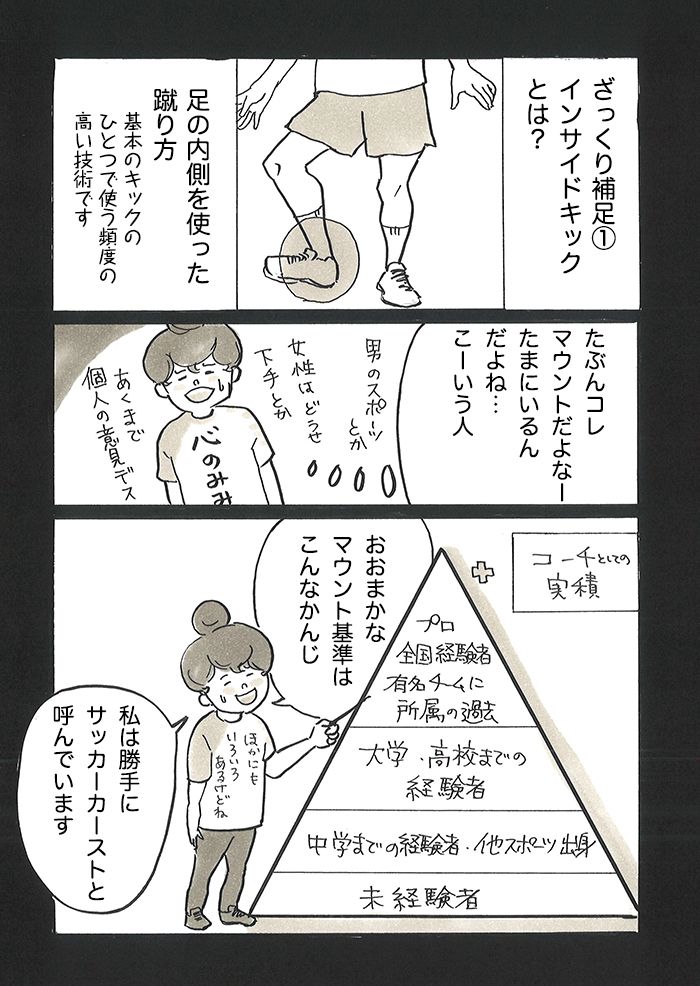 ざっくり補足①
インサイドキック
とは？
足の内側を使った
蹴り方
基本のキックの
ひとつで使う頻度の
高い技術です
たぶんコレ
マウントだよなー
たまにいるん
だよね…
こーいう人
男のスポーツ
とか
女性はどうせ
下手とか
心のみみ
あくまで
個人の意見デス
おおまかな
マウント基準は
こんなかんじ
コーチとしての
実積
プロ
全国経験者
有名チームに
所属の過去
大学・高校までの
経験者
中学までの経験者・他スポーツ出身
未経験者
ほかにも
いろいろ
あるけどね
私は勝手に
サッカーカーストと
呼んでいます